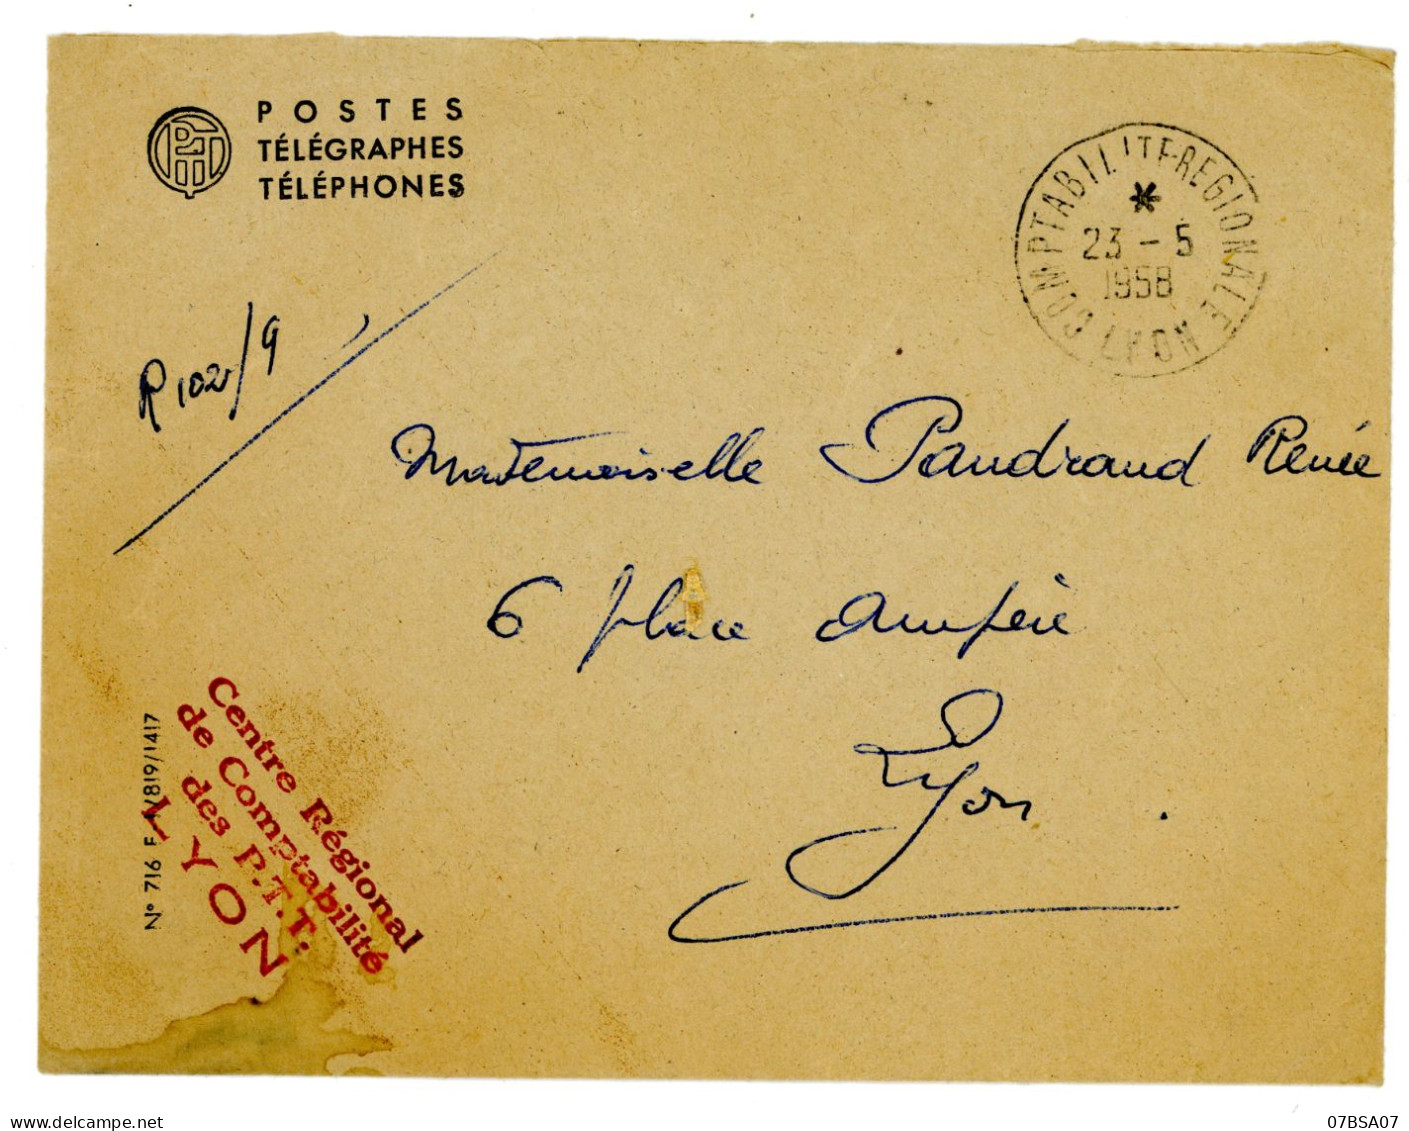 POSTES
TÉLÉGRAPHES
TÉLÉPHONES
COMPTABILITE-REGIONALE LYON
23 - 5
1958
Mademoiselle Pandraud Renée
6 place Ampère
Lyon
Centre Régional
de Comptabilité
des P.T.T.
LYON
N° 716 F /819/1417
delcampe.net
07BSA07